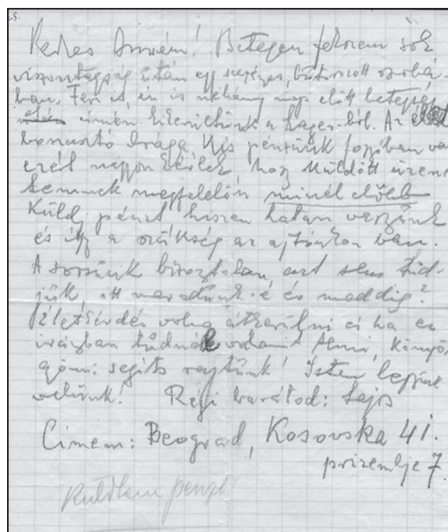 Kedves Simém! Betegen fekszem sok
viszontagság után egy szegényes, bútorozott szobá-
ban. Feri is, én is néhány nap előtt betegség
címén kikerültünk a Lager-ból. Az élet
borzasztó drága. Kis pénzünk fogyóban van
ezért nagyon kérlek, hogy küldött üzene-
temnek megfelelően minél előbb
Küldj pénzt hiszen hatan vagyunk
és itt a szükség az ajtónkon van.
A sorsunk bizonytalan, azt sem tud-
juk, itt maradunk-e és meddig?
Életkérdés volna átkerülni és ha ez
irányban tudnál valamit tenni, könyör-
göm: segíts rajtunk! Isten legyen
velünk! Régi barátod: Lajos
Címem: Beograd, Kosovska 41.
prizemlje 7.
Küldtem pénzt